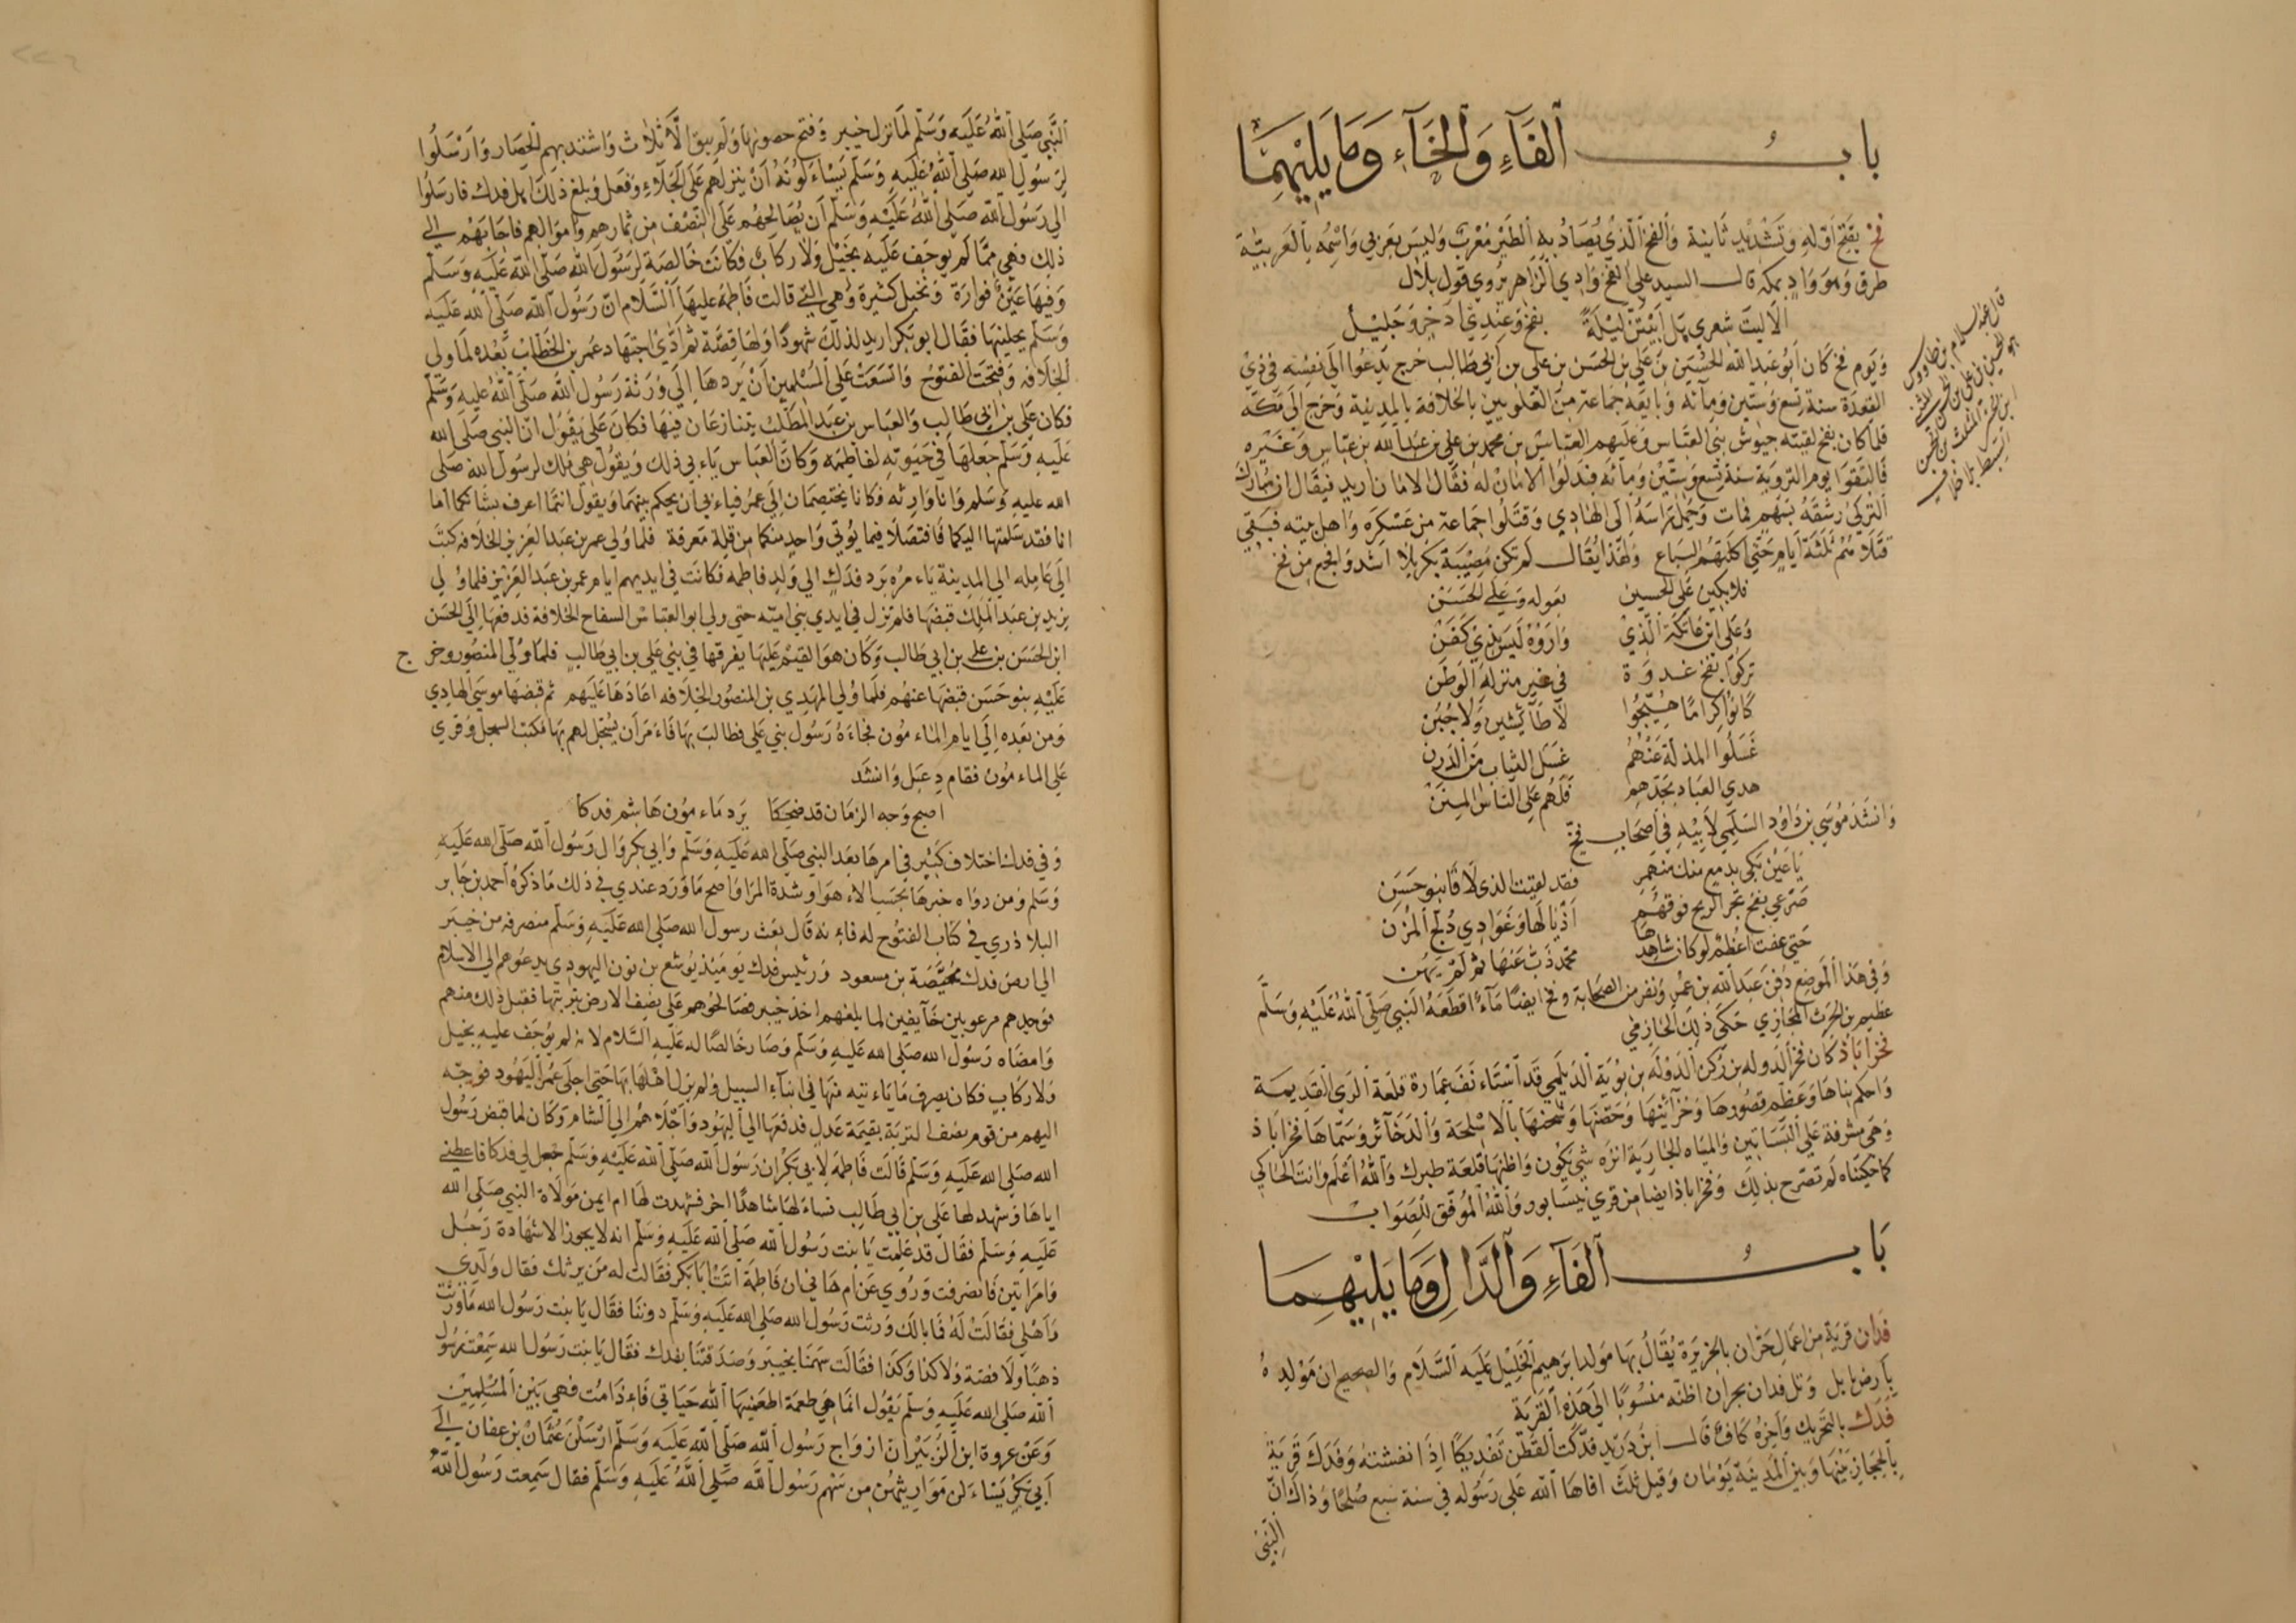 باب الفاء والخاء وما يليهما
فخ بفتح اوله وتشديد ثانية والفخ الذي يصاد به الطير معرب وليس بعربي واسمه بالعربية
طرق وهو واد بمكة قال السيد علي الفخ وادي الزاهر يروي قول بلال
الا ليت شعري هل ابيتن ليلة بفخ وعندي اذخر وجليل
ويوم فخ كان ابو عبد الله الحسين بن علي بن الحسن بن علي بن ابي طالب خرج يدعوا الي نفسه في ذي
القعدة سنة تسع وستين ومائه وبايعه جماعة من العلويين بالخلافة بالمدينة وخرج الي مكة
فلما كان بفخ لقيته جيوش بني العباس وعليهم العباس بن محمد بن علي بن عبد الله بن عباس وغيره
فالتقوا يوم التروية سنة تسع وستين ومائه فبذلوا الامان له فقال لامان اريد فيقال ان مبارك
التركي رشقه بسهم فمات وحمل راسه الي الهادي وقتلوا جماعة من عسكره واهل بيته فبقي
قتلاهم ثلثة ايام حتي اكلتهم السباع ولهذا يقال لم تكن مصيبة بكربلا اشد وافجع من فخ
فلابكين علي الحسين بعوله وعلي الحسن
وعلي ابن عاتكة الذي واروه ليس بذي كفن
تركوا بفخ غدوة في غير منزلة الوطن
كانوا كراما هيجوا لا طائشين ولا جبن
غسلوا المذلة عنهم غسل الثياب من الدرن
هدي العباد بجدهم فلهم علي الناس المنن
وانشد موسي بن داود السلمي لابيه في اصحاب فخ
يا عين بكي بدمع منك منهمر فقد لقيت الذي لاقا بنو حسن
صرعي بفخ تجر الريح فوقهم اذيالها وغوادي دلج المزن
حتي عفت اعظم لو كان شاهدها محمد ذب عنها ثم لم تهن
وفي هذا الموضع دفن عبد الله بن عمر ونفر من الصحابة وفخ ايضا ماء اقطعه النبي صلي الله عليه وسلم
عظيم بن الحرث المحاربي حكي ذلك الحازمي
فخراباذ كان فخر الدوله بن ركن الدوله بن بوية الديلمي قد استاءنف عمارة قلعة الري القديمة
واحكم بناها وعظم قصورها وخزائنها وحصنها وشحنها بالاسلحة والدخائر وسماها فخراباذ
وهي مشرفة علي البساتين والمياه الجارية انزه شي يكون واظنها قلعة طبرك والله اعلم وانت الحاكي
كما حكيناه لم تصرح بذلك وفخراباذ ايضا من قري نيسابور والله الموفق للصواب
باب الفاء والدال وما يليهما
فدان قرية من اعمال حران بالجزيرة يقال بها مولد ابرهيم الخليل عليه السلام والصحيح ان مولده
بارض بابل وتل فدان بحران اظنه منسوبا الي هذه القرية
فدك بالتحريك واخره كاف قال ابن دريد فدكت القطن تفديكا اذا نفشته وفدك قرية
بالحجاز بينها وبين المدينة يومان وقيل ثلث افاها الله علي رسوله في سنة سبع صلحا وذاك ان
النبي
النبي صلي الله عليه وسلم لما نزل خيبر وفتح حصونها ولم يبق الا ثلاث واشتد بهم الحصار وارسلوا
لرسول الله صلي الله عليه وسلم يساءلونه ان ينزلهم علي الجلاء وفعل وبلغ ذلك اهل فدك فارسلوا
الي رسول الله صلي الله عليه وسلم ان يصالحهم علي النصف من ثمارهم واموالهم فاجابهم الي
ذلك فهي مما لم يوجف عليه بخيل ولا ركاب فكانت خالصة لرسول الله صلي الله عليه وسلم
وفيها عين فوارة ونخيل كثيرة وهي التي قالت فاطمة عليها السلام ان رسول الله صلي الله عليه
وسلم نحلنيها فقال ابو بكر اريد لذلك شهودا ولها قصة ثم ادي اجتهاد عمر بن الخطاب بعده لما ولي
الخلافه وفتحت الفتوح واتسعت علي المسلمين ان يردها الي ورثة رسول الله صلي الله عليه وسلم
فكان علي بن ابي طالب والعباس بن عبد المطلب يتنازعان فيها فكان علي يقول ان النبي صلي الله
عليه وسلم جعلها في حيوته لفاطمه وكان العباس ياءبي ذلك ويقول هي ملك لرسول الله صلي
الله عليه وسلم وانا وارثه فكانا يختصمان الي عمر فياءبي ان يحكم بينهما ويقول انتما اعرف بشانكما اما
انا فقد سلمتها اليكما فاقتصلا فيما يوتي واحد منكما من قلة معرفة فلما ولي عمر بن عبد العزيز الخلافه كتب
الي عامله الي المدينة ياءمره برد فدك الي ولد فاطمه فكانت في ايديهم ايام عمر بن عبد العزيز فلما ولي
يزيد بن عبد الملك قبضها فلم تزل في ايدي بني اميه حتي ولي ابو العباس السفاح الخلافة فدفعها الي الحسن
ابن الحسن بن علي بن ابي طالب وكان هو القيم عليها يفرقها في بني علي بن ابي طالب فلما ولي المنصور وخرج
عليه بنو حسن قبضها عنهم فلما ولي المهدي بن المنصور الخلافه اعادها عليهم ثم قبضها موسي الهادي
ومن بعده الي ايام الماءمون فجاءه رسول بني علي فطالب بها فاءمر ان يسجل لهم بها فكتب السجل وقري
علي الماءمون فقام دعبل وانشد
اصبح وجه الزمان قد ضحكا برد ماءمون هاشم فدكا
وفي فدك اختلاف كثير في امرها بعد النبي صلي الله عليه وسلم وابي بكر وال رسول الله صلي الله عليه
وسلم ومن رواه خبرها بحسب الاءهوا وشدة المرا واصح ما ورد عندي في ذلك ما ذكره احمد بن جابر
البلاذري في كتاب الفتوح له فاءنه قال بعث رسول الله صلي الله عليه وسلم منصرفه من خيبر
الي ارض فدك محيصة بن مسعود ورئيس فدك يومئذ يوشع بن نون اليهودي يدعوهم الي الاسلام
فوجدهم مرعوبين خائفين لما بلغهم اخذ خيبر فصالحوهم علي نصف الارض بتربتها فقبل ذلك منهم
وامضاه رسول الله صلي الله عليه وسلم وصار خالصا له عليه السلام لانه لم يوجف عليه بخيل
ولا ركاب فكان يصرف ما ياءتيه منها في ابناء السبيل ولم يزل اهلها بها حتي اجلي عمر اليهود فوجه
اليهم من قوم نصف التربة بقيمة عدل فدفعها الي اليهود واجلاهم الي الشام وكان لما قبض رسول
الله صلي الله عليه وسلم قالت فاطمة لابي بكر ان رسول الله صلي الله عليه وسلم جعل لي فدكا فاعطني
اياها وشهد لها علي بن ابي طالب فساءلها شاهدا اخر فشهدت لها ام ايمن مولاة النبي صلي الله
عليه وسلم فقال قد علمت يا بنت رسول الله صلي الله عليه وسلم انه لا يجوز الا شهادة رجل
وامراتين فانصرفت وروي عن ام هاني ان فاطمة اتت ابا بكر فقالت له من يرثك فقال ولدي
واهلي فقالت له فما بالك ورثت رسول الله صلي الله عليه وسلم دوننا فقال يا بنت رسول الله ما ورثت
ذهبا ولا فضة ولا كذا وكذا فقالت سهمنا بخيبر وصدقتنا بفدك فقال يا بنت رسول الله سمعت رسول
الله صلي الله عليه وسلم يقول انما هي طعمة اطعمنيها الله حياتي فاءذا مت فهي بين المسلمين
وعن عروة ابن الزبير ان ازواج رسول الله صلي الله عليه وسلم ارسلن عثمان بن عفان الي
ابي بكر يساءلن مواريثهن من سهم رسول الله صلي الله عليه وسلم فقال سمعت رسول الله